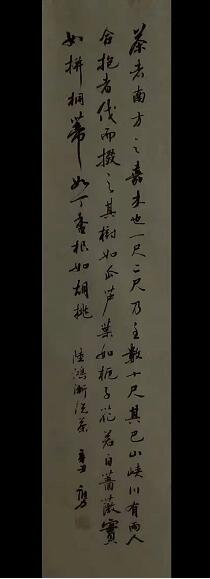 茶者南方之嘉木也一尺二尺乃至數十尺其巴山峽川有兩人
合抱者伐而掇之其樹如瓜芦葉如栀子花若白薔薇實
如拼榈蒂如丁香根如胡桃 陸鴻漸說茶 辛丑